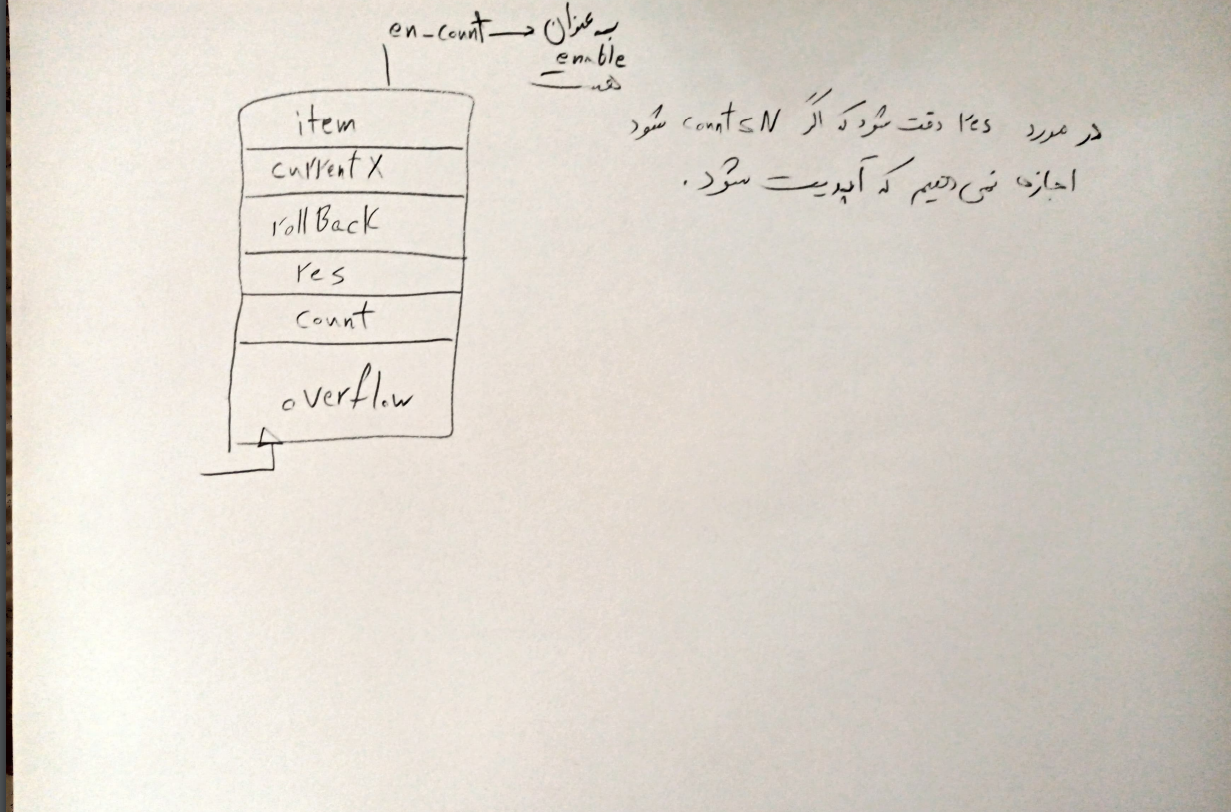 en-count → به عنوان
enable
هست
item
currentX
rollBack
res
count
overflow
در مورد res دقت شود که اگر count≤N شود
اجازه نمی‌دهیم که آپدیت شود.